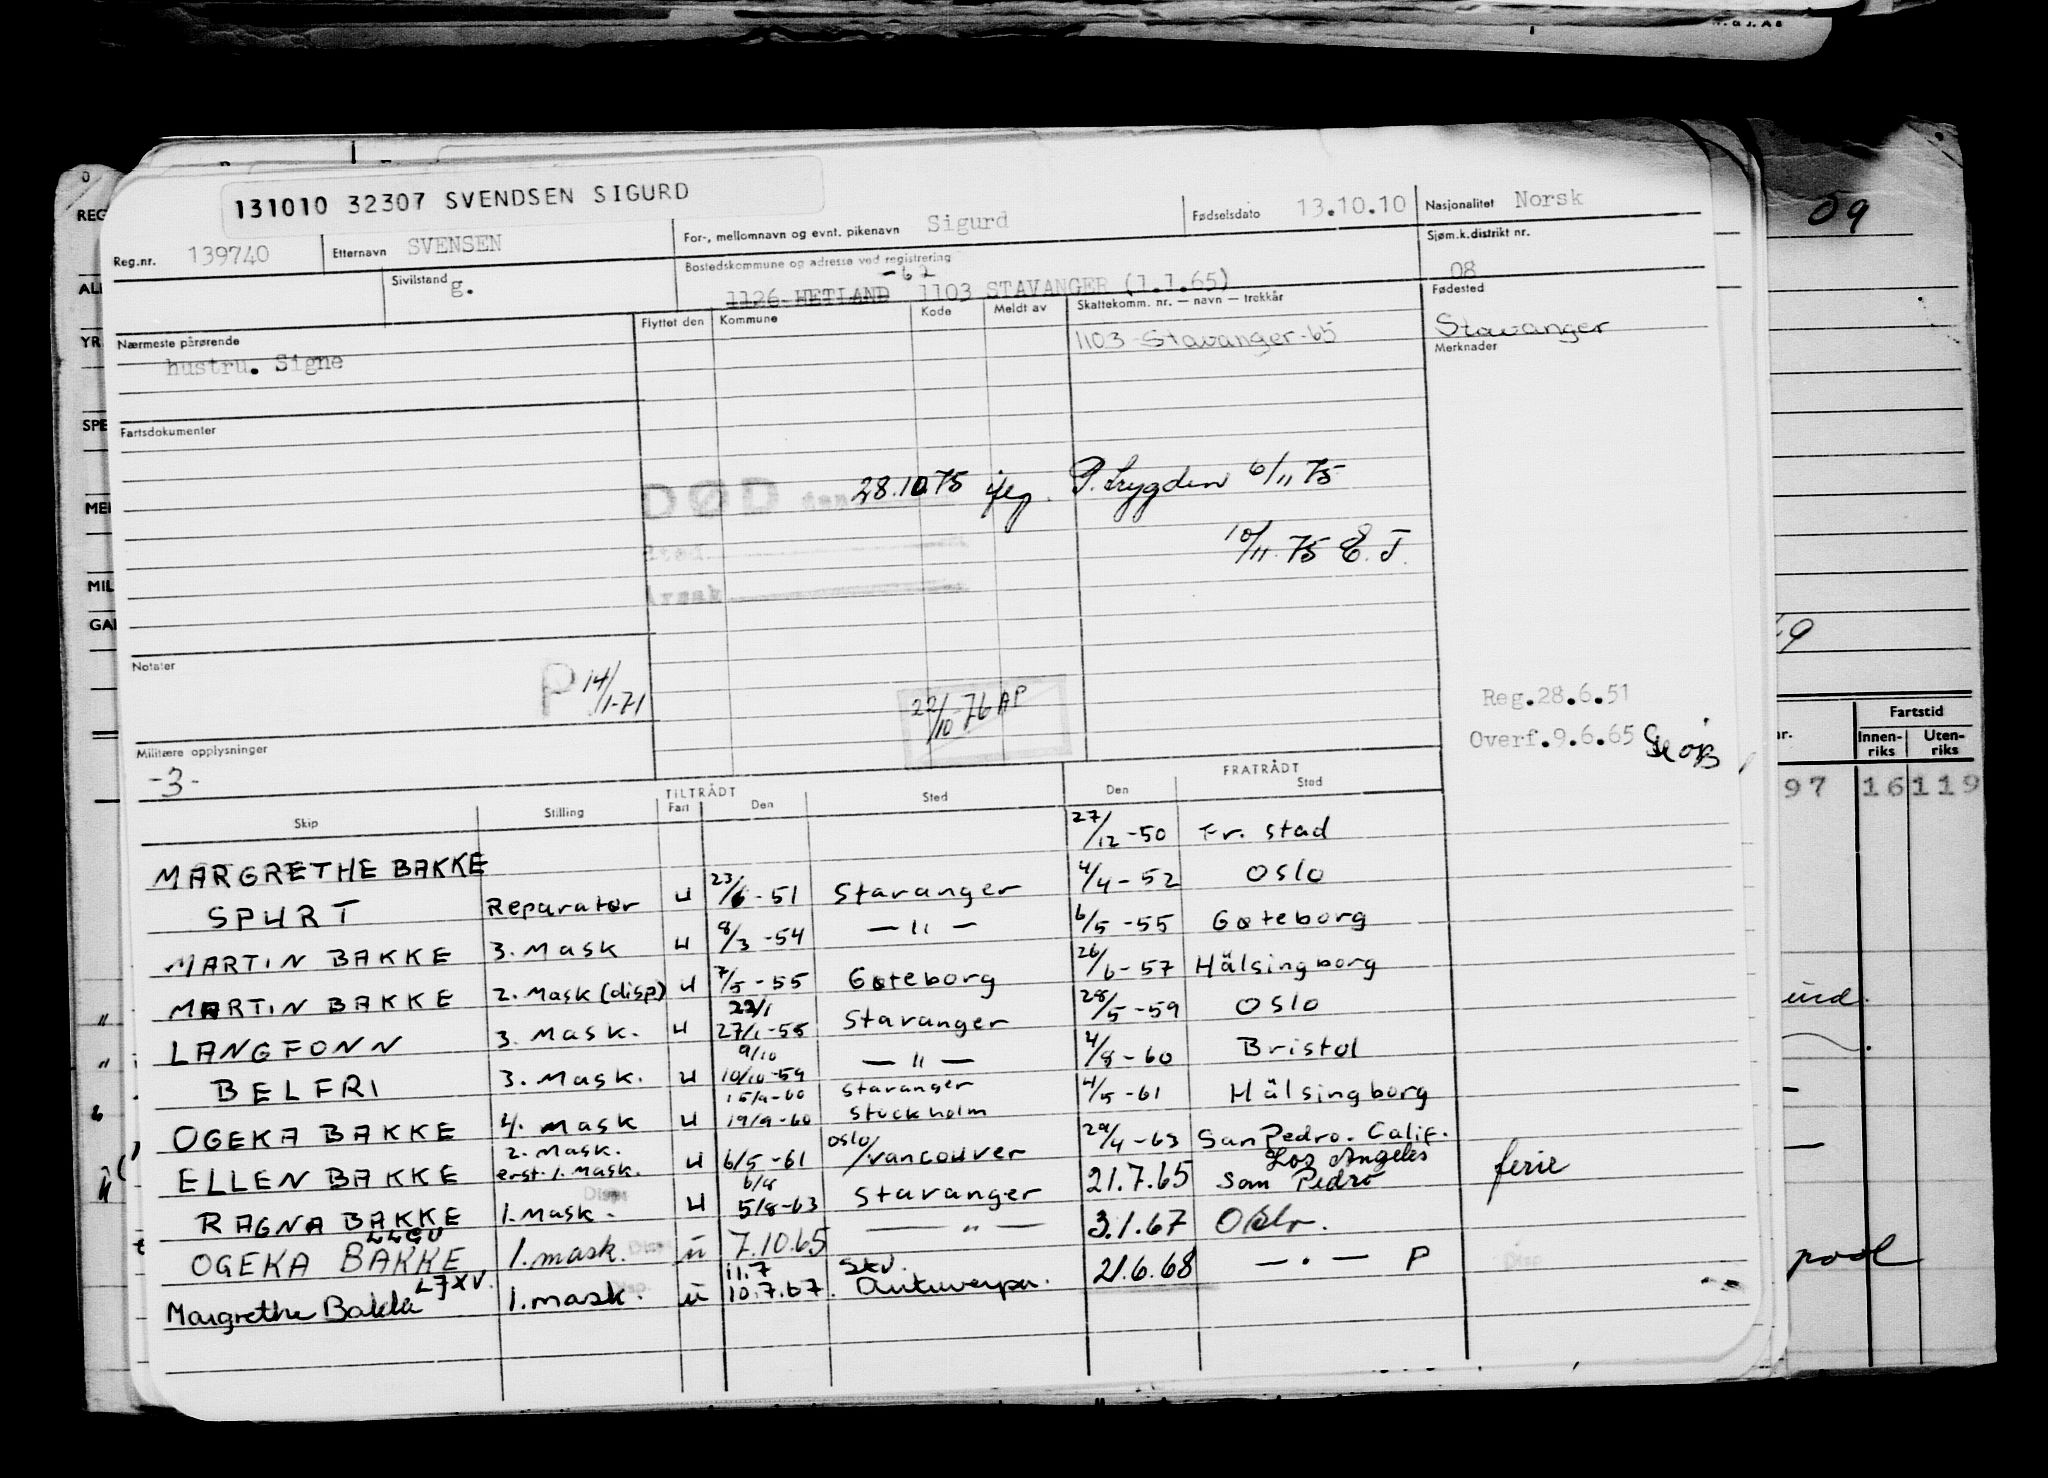 131010 32307 SVENDSEN SIGURD
Reg.nr. 139740 Etternavn SVENSEN For-, mellomnavn og evnt. pikenavn Sigurd Fødselsdato 13.10.10 Nasjonalitet Norsk
Sivilstand g. Bostedskommune og adresse ved registrering Sjøm.k.distrikt nr. 08
-62
1126 HETLAND 1103 STAVANGER (1.1.65)
Nærmeste pårørende Flyttet den Kommune Kode Meldt av Skattekomm. nr. — navn — trekkår Fødested
hustru. Signe 1103-Stavanger-65 Stavanger
Merknader
Fartsdokumenter
DØD den 28.10.75 P.Trygden 6/11 75
Sted.
10/11.75 E.J.
Årsak
Notater
P 14/1-71
22/10-76 AP
Reg.28.6.51
Overf.9.6.65
Militære opplysninger
-3-
TILTRÅDT FRATRÅDT
Skip Stilling Fart Den Sted Den Sted
MARGRETHE BAKKE 27/12-50 Fr. stad
SPURT Reparatør U 23/6-51 Stavanger 4/4-52 Oslo
MARTIN BAKKE 3. Mask U 8/3-54 — " — 6/5-55 Gøteborg
MARTIN BAKKE 2. Mask (disp) U 7/5-55 Gøteborg 26/6-57 Hälsingborg
22/1
LANGFONN 3. Mask. U 27/1-58 Stavanger 28/5-59 Oslo
9/10
BELFRI 3. Mask. U 10/10-59 — " — 4/8-60 Bristol
15/9-60 Stavanger
OGEKA BAKKE 4. Mask U 19/9-60 Stockholm 4/5-61 Hälsingborg
2. Mask.
ELLEN BAKKE erst. 1. Mask. U 6/5-61 Oslo/Vancouver 29/4-63 San Pedro. Calif.
6/8 Los Angeles
RAGNA BAKKE 1. Mask. U 5/8-63 Stavanger 21.7.65 San Pedro ferie
LLGU
OGEKA BAKKE 1. mask. u 7.10.65 — " — 3.1.67 Oslo.
LJXV. 11.7 Stv.
Margrethe Bakke 1. mask. u 10.7.67. Antwerpen. 21.6.68 — " — P
REG
ALI
YR
SPE
MIL
GA
59
Fartstid
nr. Innen-riks Uten-riks
97 16 119
pool